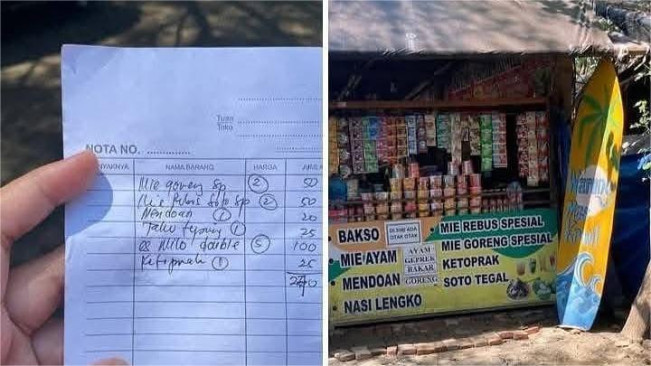 Tuan
Toko
NOTA NO.
BANYAKNYA NAMA BARANG HARGA
Mie goreng sp 2 50
Mie Rebus soto sp 2 50
Mendoan 1 20
Tahu 1 25
es Milo double 5 100
Ketoprak 1 25
BAKSO
MIE AYAM
MENDOAN
NASI LENGKO
DI SINI ADA
OTAK OTAK
AYAM
GEPREK
BAKAR
GORENG
MIE REBUS SPESIAL
MIE GORENG SPESIAL
KETOPRAK
SOTO TEGAL
Warung